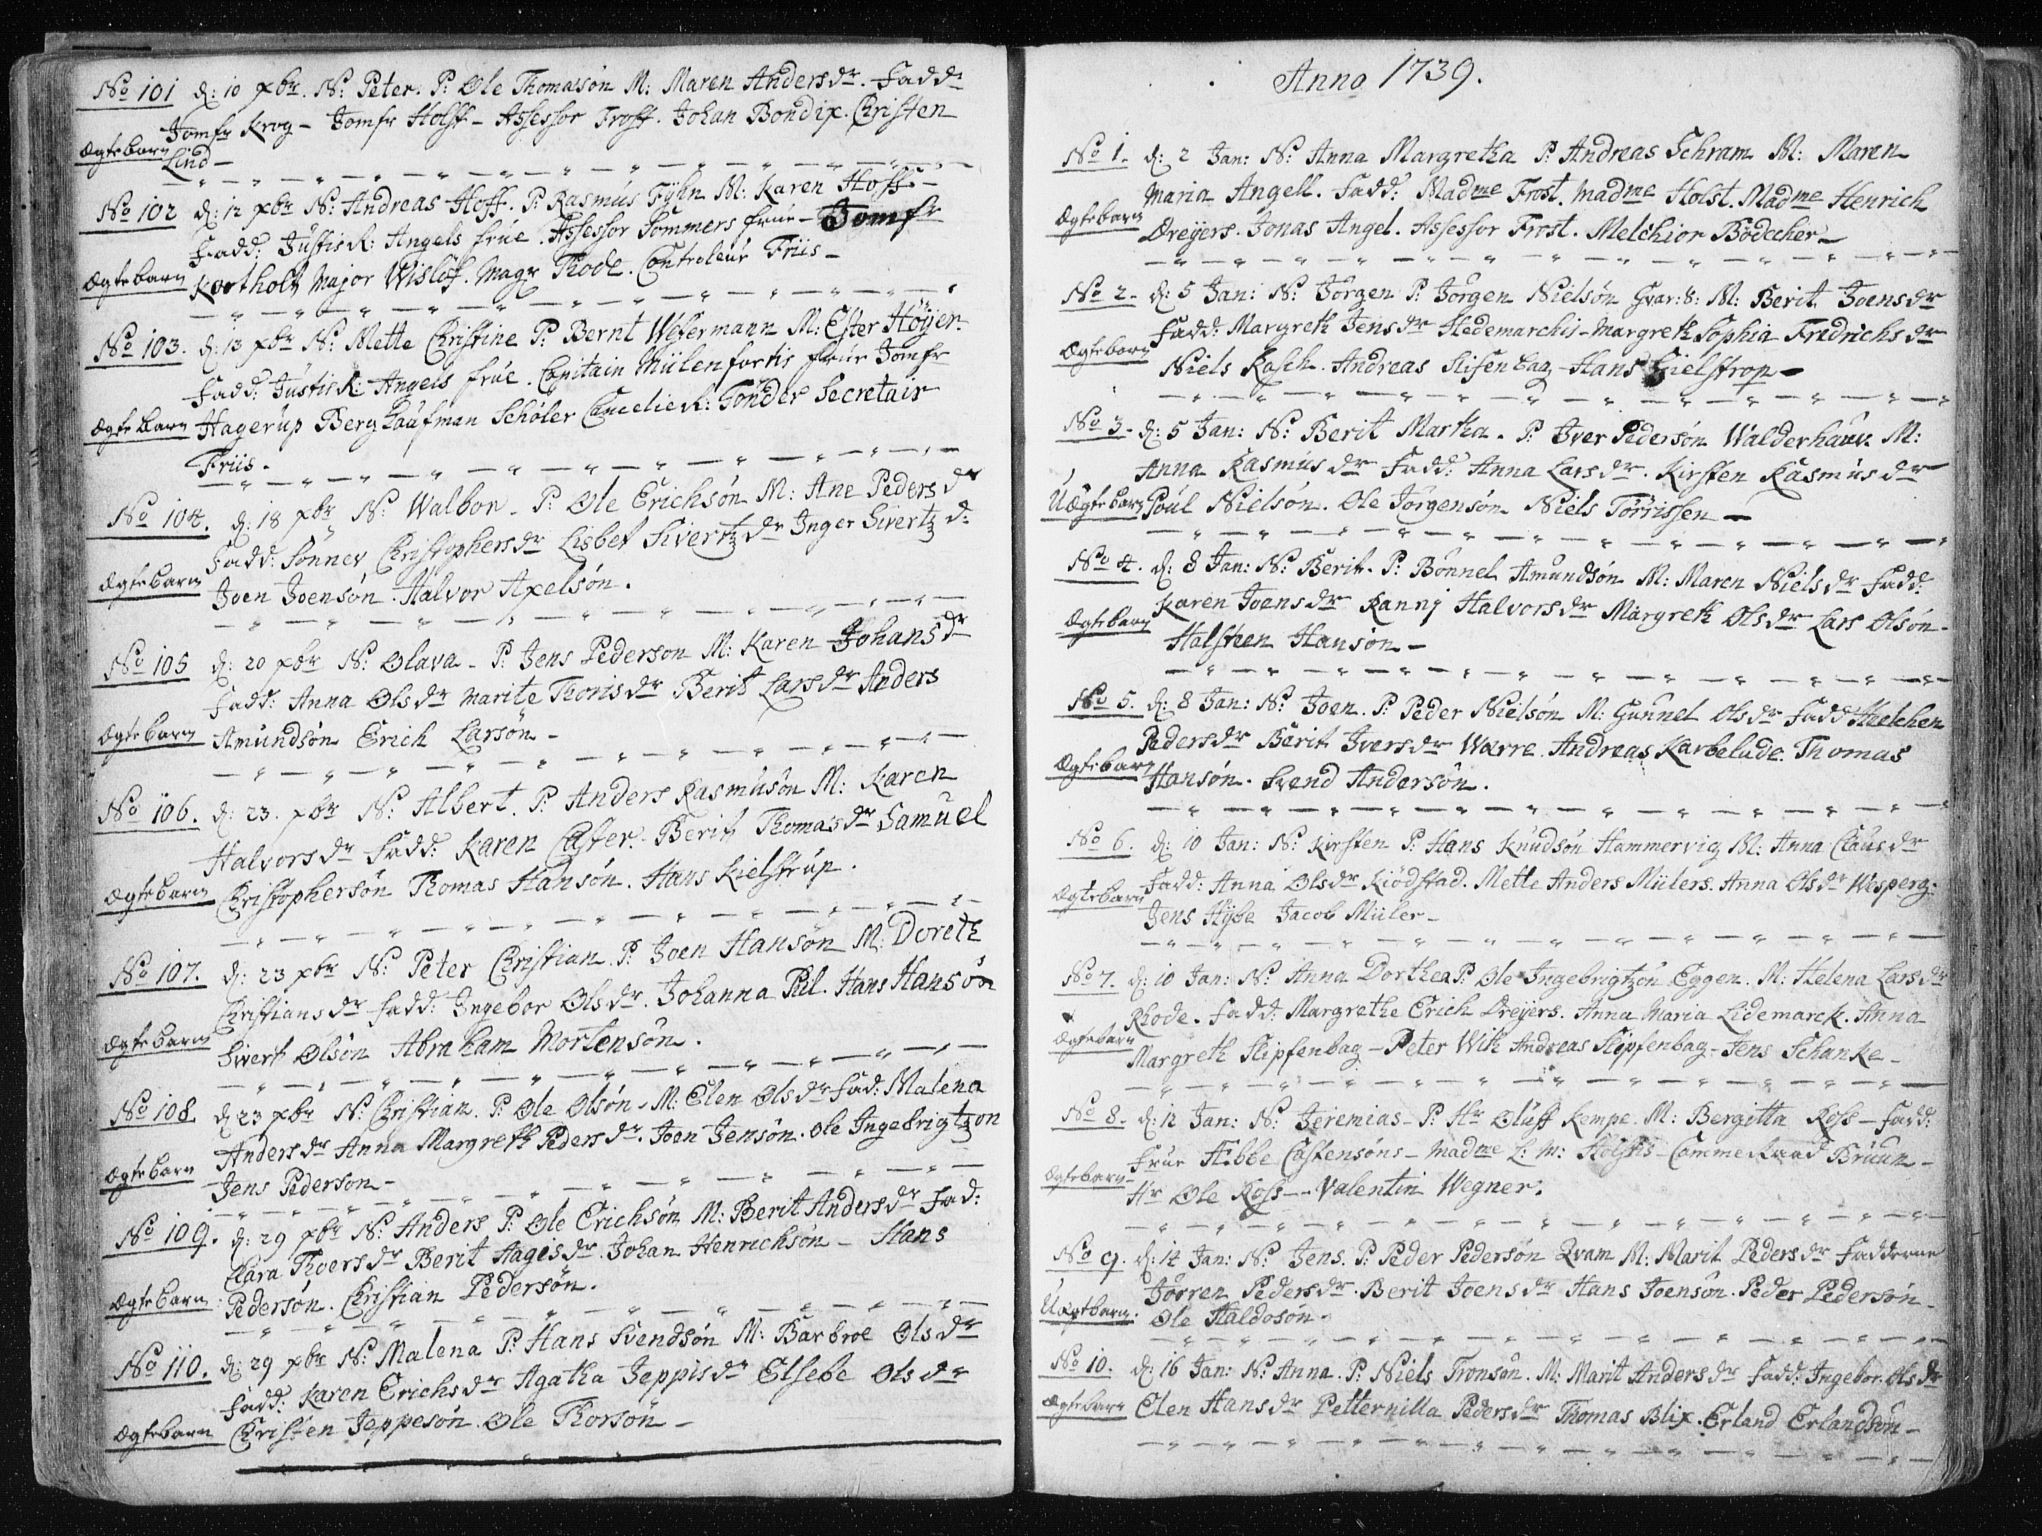 No 101 d: 10 xbr. N: Peter. P: Ole Thomasøn M: Maren Andersdr. Fadd:
Jomfr Krog - Jomfr Holst - Assessor Frost. Johan Bondix. Christen
Ægtebarn Lind -
No 102 d: 12 xbr N: Andreas Hoff. P: Rasmus Fyhn M: Karen Hoff. -
Fadd: Justis R: Angels frue. Assessor Sommers frue - Jomfr
Ægtebarn Kortholt Major Wisløff. Magr Thode. Controleur Friis -
No 103. d: 13 xbr N: Mette Christine P: Bernt Wesermann M: Ester Høyer.
Fadd: Justis R: Angels frue. Capitain Mülenfortis frue Jomfr
Ægtebarn Hagerup Berg Kaufman Schøler Cancelie R: Tønder Secretair
Friis.
No 104. d: 18 xbr N: Walbor. P: Ole Erichsøn M: Ane Pedersdr
Fadd: Sønnev Christophersdr Lisbet Sivertzdr Inger Sivertz d:
Ægtebarn Joen Joensøn. Halvor Axelsøn.
No 105 d: 20 xbr N: Olava. P: Jens Pedersøn M: Karen Johansdr
Fadd: Anna Olsdr Marite Thorisdr Berit Larsdr Anders
Ægtebarn Amundsøn Erich Larsøn -
No 106. d: 23. xbr N: Albert. P: Anders Rasmusøn M: Karen
Halvorsdr Fadd: Karen Caster. Berit Thomasdr Samuel
Ægtebarn Christophersøn Thomas Hansøn. Hans Kielstrup.
No 107. d: 23 xbr N: Peter Christian. P: Joen Hansøn M: Doreth
Christiansdr Fadd: Ingebor Olsdr. Johanna Phl. Hans Hansøn
Ægtebarn Sivert Olsøn Abraham Mortensøn.
No 108. d: 23 xbr N: Christian. P: Ole Olsøn. M: Elen Olsdr Fad: Malena
Andersdr Anna Margreth Pedersdr. Joen Jensøn. Ole Ingebrigtzøn
Ægtebarn Jens Pedersøn -
No 109. d: 29 xbr N: Anders P: Ole Erichsøn M: Berit Andersdr Fad:
Clara Thoersdr Berit Hagesdr. Johan Henrichsøn - Hans
Ægtebarn Pedersøn. Christian Pedersøn.
No 110. d: 29 xbr N: Malena P: Hans Svendsøn M: Barbroe Olsdr
Fadd: Karen Erichsdr Agatha Jeppisdr Elsebe Olsdr
Ægtebarn Christen Jeppesøn. Ole Thorsøn -
Anno 1739.
No 1. d: 2 Jan: N: Anna Margretha P: Andreas Schram M: Maren
Maria Angell. Fadd: Madme Frost. Madme Holst. Madme Henrich
Ægtebarn Dreyers. Jonas Angel. Assessor Frost. Melchior Bødecher -
No 2. d: 5 Jan: N: Jørgen P: Jørgen Nielsøn Gvar: 8: M: Berit Joensdr
Fadd: Margreth Jensdr Hedemarchis - Margreth Sophia Fredrichsdr
Ægtebarn Niels Rasch. Andreas Slisenbag - Hans Kielstrop -
No 3. d: 5 Jan: N: Berit Martha. P: Iver Pedersøn Walderhaug. M:
Anna Rasmusdr Fadd: Anna Larsdr. Kirsten Rasmusdr
Uægtebarn Poul Nielsøn. Ole Jørgensøn Niels Tørrissen -
No 4. d: 8 Jan: N: Berit. P: Bønnel Amundsøn M: Maren Nielsdr Fadd:
Karen Joensdr Rannj Halvorsdr Margreth Olsdr Lars Olsøn -
Ægtebarn Halsteen Hansøn -
No 5. d: 8 Jan: N: Joen. P: Peder Nielsøn M: Gunnel Olsdr Fadd: Maelchen
Pedersdr Berit Iversdr Warre. Andreas Karbelude. Thomas
Ægtebarn Hansøn. Svend Andersøn.
No 6. d: 10 Jan: N: Kirsten P: Hans Knudsøn Hammervig M: Anna Clausdr
Fadd: Anna Olsdr Kiødstad. Mette Anders Mülers. Anna Olsdr Wesperg:
Ægtebarn Jens Hybe Jacob Müler -
No 7. d: 10 Jan: N: Anna Dorthea P: Ole Ingebrigtzøn Eggen. M: Helena Larsdr
Rhode. Fadd: Margrethe Erich Dreyers. Anna Maria Lidemarck. Anna
Ægtebarn Margreth Slipfenbag - Peter With Andreas Slipfenbag - Jens Schanke -
No 8. d: 12 Jan: N: Jeremias - P: Hr Oluff Kempe M: Bergitta Ross - Fadd:
Frue Hebbe Castensøns - Madme L: M: Holstis - Commerraad Bruun -
Ægtebarn Hr Ole Ross - Valentin Wegner.
No 9. d: 14 Jan: N: Jens. P: Peder Pedersøn Qvam M: Marit Pedersdr Fadderne
Jørren Pedersdr. Berit Joensdr Hans Joensøn. Peder Pedersøn -
Uægtbarn: Ole Haldosøn -
No 10. d: 16 Jan: N: Anna. P: Niels Tronsøn. M: Marit Andersdr Fadd: Ingebor. Olsdr
Ægtebarn Elen Hansdr Petternilla Pedersdr Thomas Blix. Erland Erlandsøn -